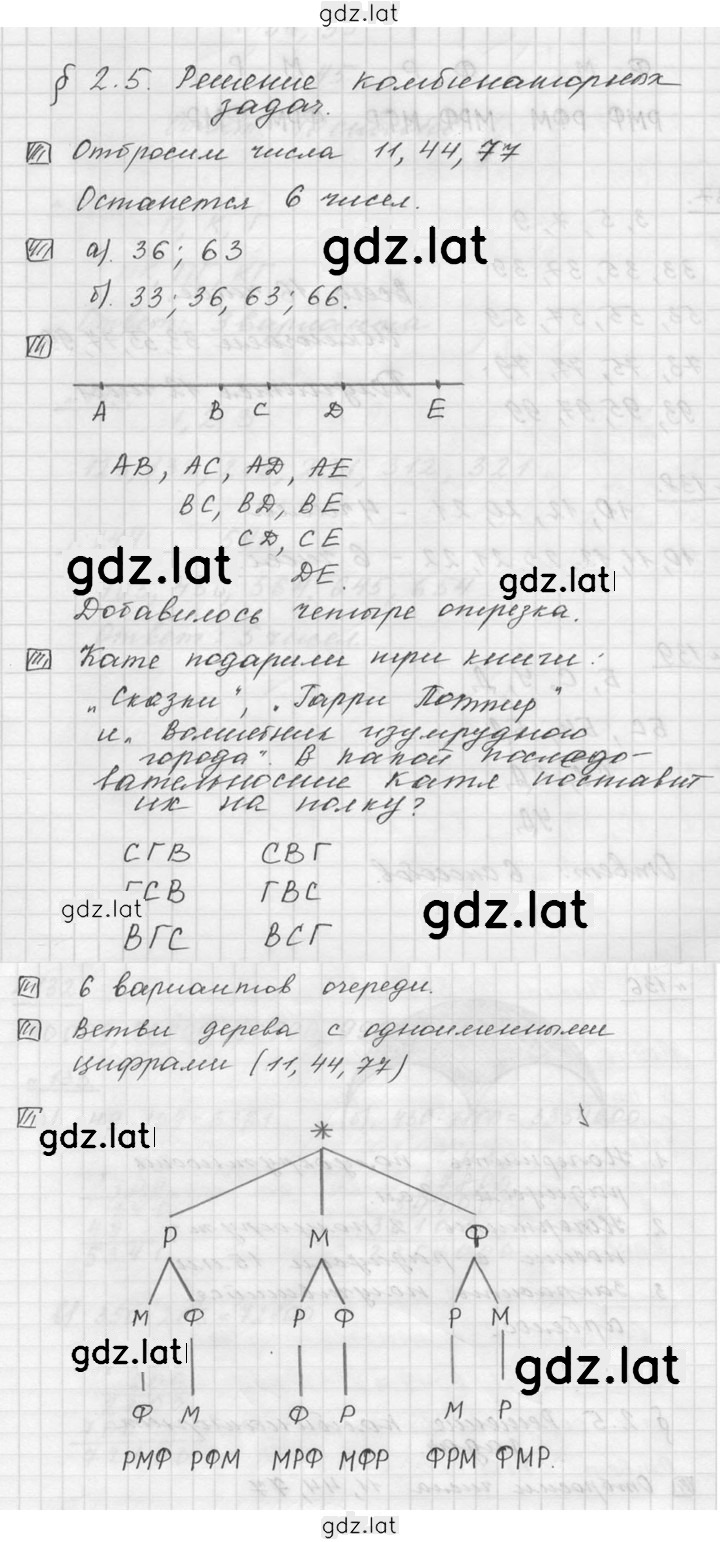 gdz.lat
§ 2.5. Решение комбинаторных
задач.
Отбросим числа 11, 44, 77
Останется 6 чисел.
gdz.lat
а). 36; 63
б). 33; 36, 63; 66.
A B C D E
AB, AC, AD, AE
BC, BD, BE
CD, CE
DE.
gdz.lat
gdz.lat
Добавилось четыре отрезка.
Кате подарили три книги:
„Сказки", „Гарри Поттер"
и „Волшебник изумрудного
города". В какой последо-
вательносте Катя поставит
их на полку?
СГВ СВГ
ГСВ ГВС
ВГС ВСГ
gdz.lat
gdz.lat
6 вариантов очереди.
Ветви дерева с одноименными
цифрами (11, 44, 77)
gdz.lat
*
Р М Ф
М Ф Р Ф Р М
gdz.lat
gdz.lat
Ф М Ф Р М Р
РМФ РФМ МРФ МФР ФРМ ФМР.
gdz.lat